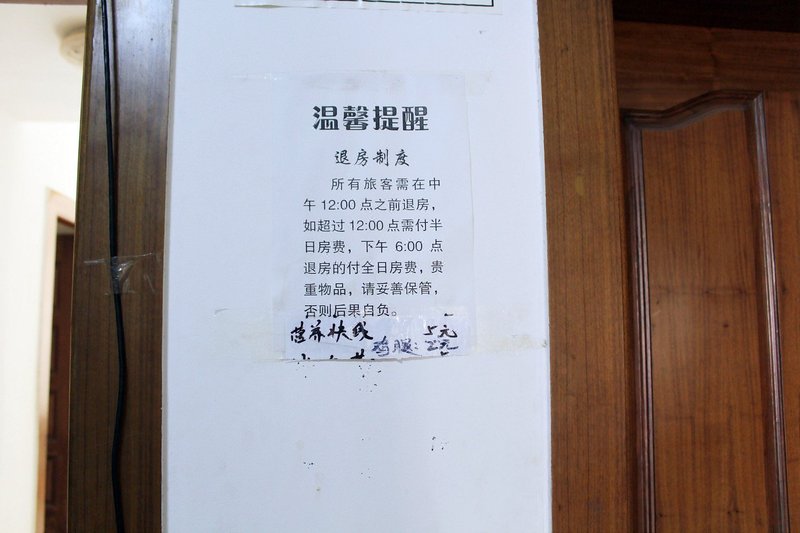 温馨提醒
退房制度
所有旅客需在中
午12:00点之前退房，
如超过12:00点需付半
日房费，下午 6:00 点
退房的付全日房费，贵
重物品，请妥善保管，
否则后果自负。
营养快线 5元
鸡腿：2元